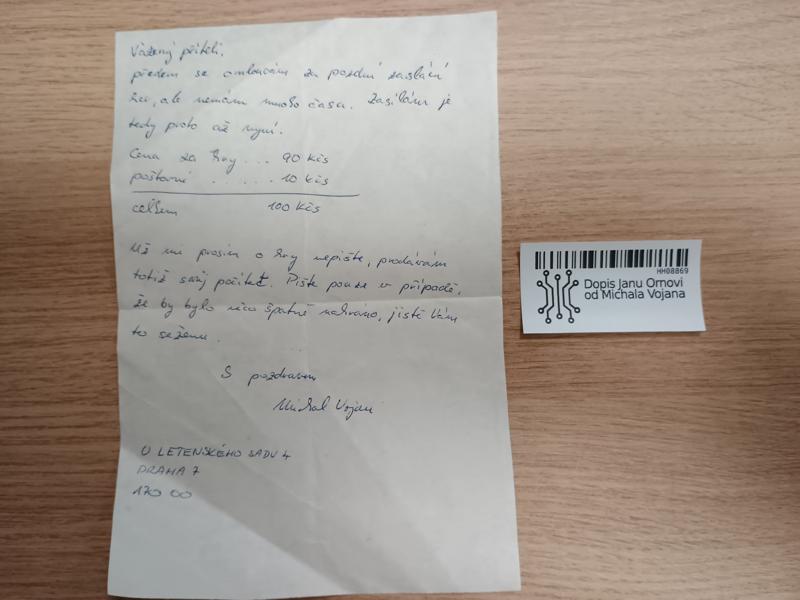 Vážený příteli,
předem se omlouvám za pozdní zaslání
her, ale nemám mnoho času. Zasílám je
tedy proto až nyní.
Cena za hry ... 90 Kčs
poštovné ...... 10 Kčs
celkem 100 Kčs
Už mi prosím o hry nepište, prodávám
totiž svůj počítač. Pište pouze v případě,
že by bylo něco špatně nahráno, jistě Vám
to seženu.
S pozdravem
Michal Vojan
U LETENSKÉHO SADU 4
PRAHA 7
170 00
HH08869
Dopis Janu Ornovi
od Michala Vojana